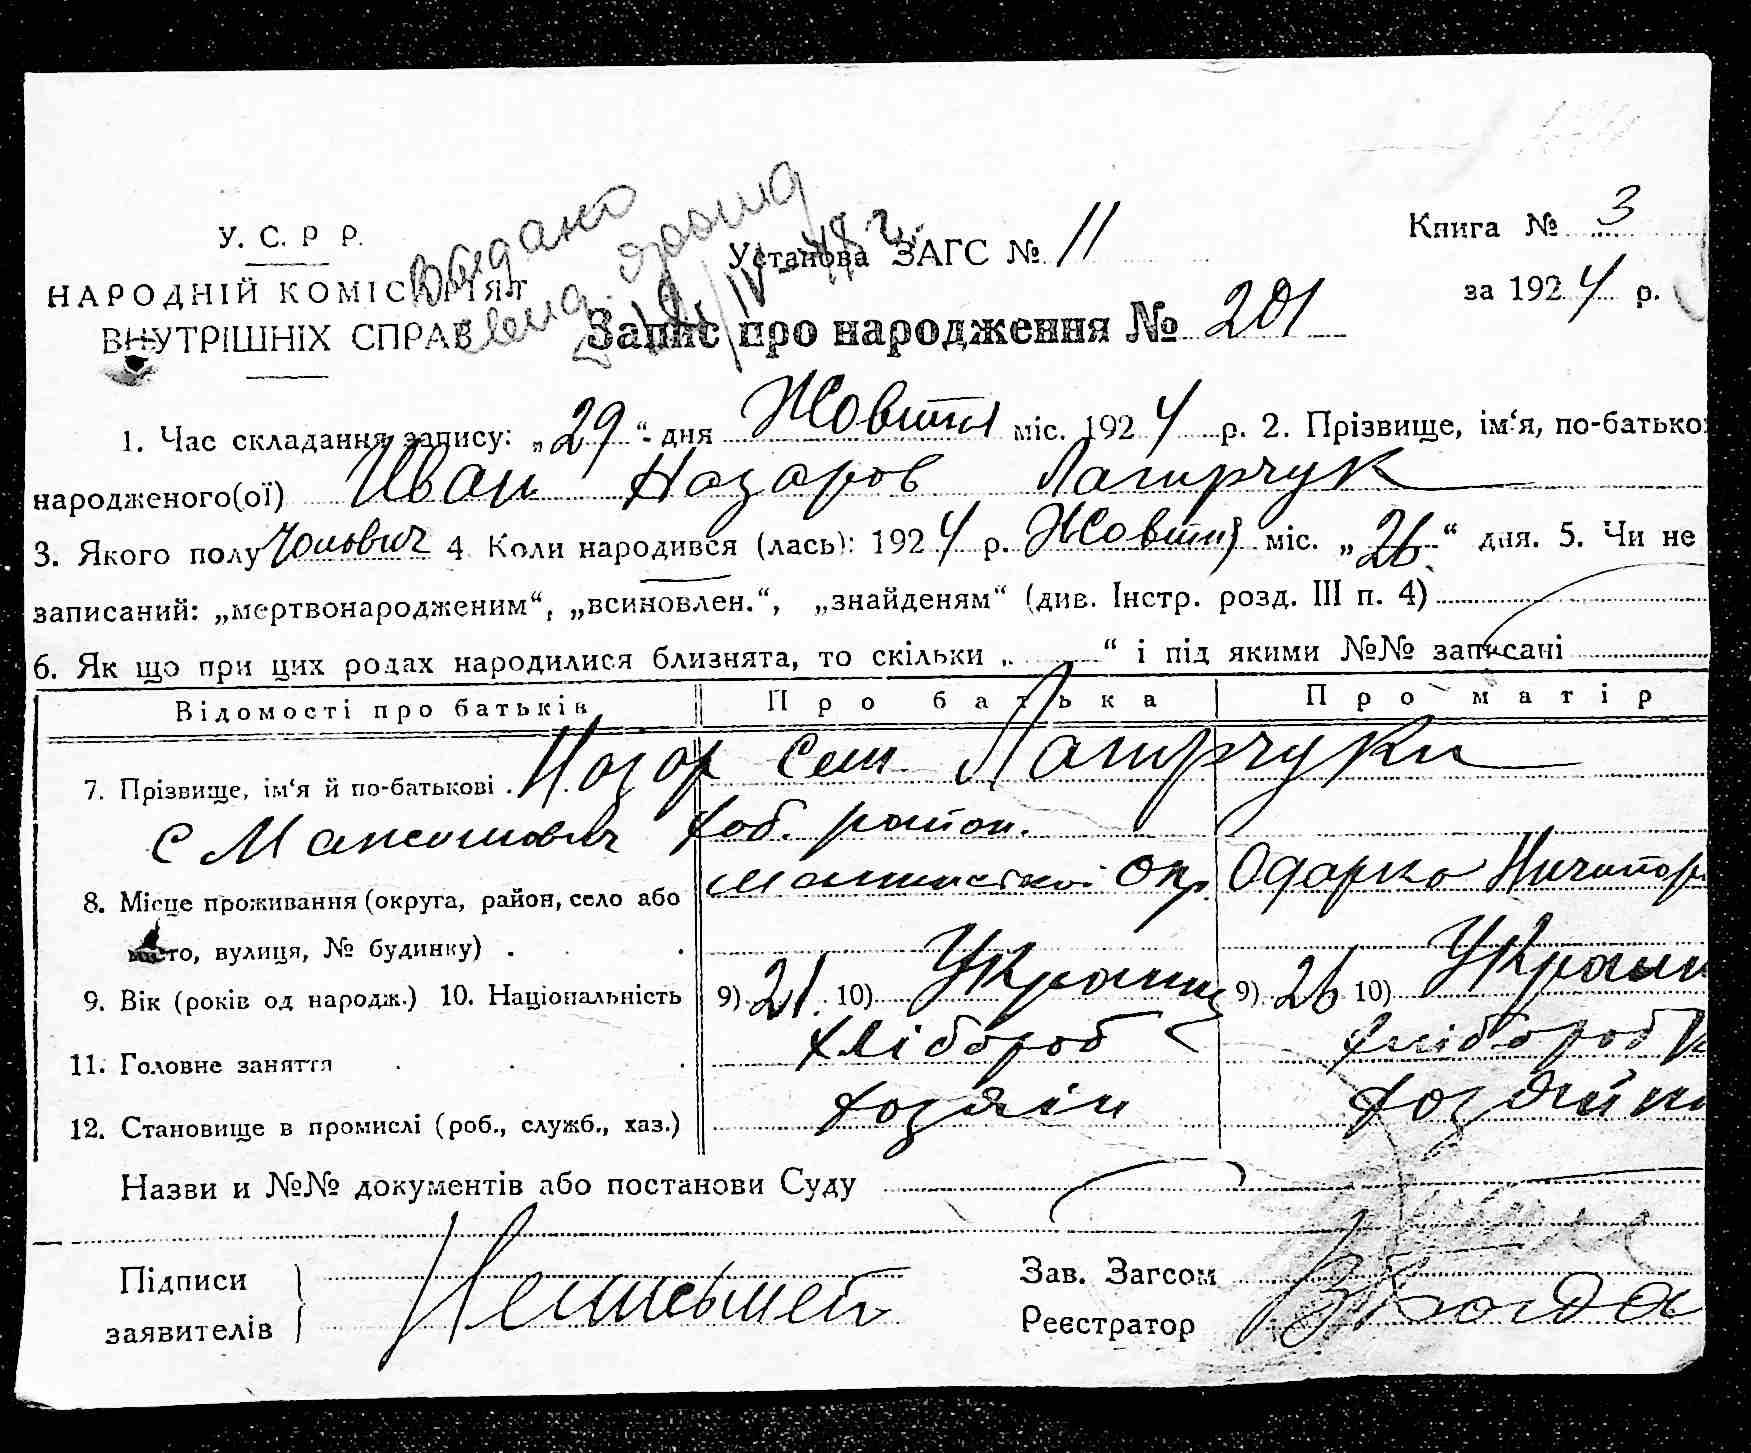 У. С. Р Р.
НАРОДНІЙ КОМІСАРІЯТ
ВНУТРІШНІХ СПРАВ
Видано
Установа ЗАГС № 11
Книга № 3
за 1924 р.
Запис про народження № 201
1. Час складання запису: „29“ дня Жовтня міс. 1924 р. 2. Прізвище, ім‘я, по-батько
народженого(ої) Иван Назаров Лагирчук
3. Якого полу Чоловіч 4 Коли народився (лась): 1924 р. Жовтня міс. „26“ дня. 5. Чи не
записаний: „мертвонародженим“, „всиновлен.“, „знайденям“ (див. Інстр. розд. III п. 4)
6. Як що при цих родах народилися близнята, то скільки „ “ і під якими №№ записані
Відомості про батьків Про батька Про матір
7. Прізвище, ім‘я й по-батькові . Назар Сем Лагирчуки
с район.
Окр. Одарка Ничипор
8. Місце проживання (округа, район, село або
місто, вулиця, № будинку) .
9. Вік (років од народж.) 10. Національність 9) 21 10) Украин 9) 26 10) Украин
11. Головне заняття Хлібороб Хлібороб
12. Становище в промислі (роб., служб., хаз.) Хозяін Хозяйк
Назви и №№ документів або постанови Суду
Підписи
заявителів
Неписьмен
Зав. Загсом
Реєстратор